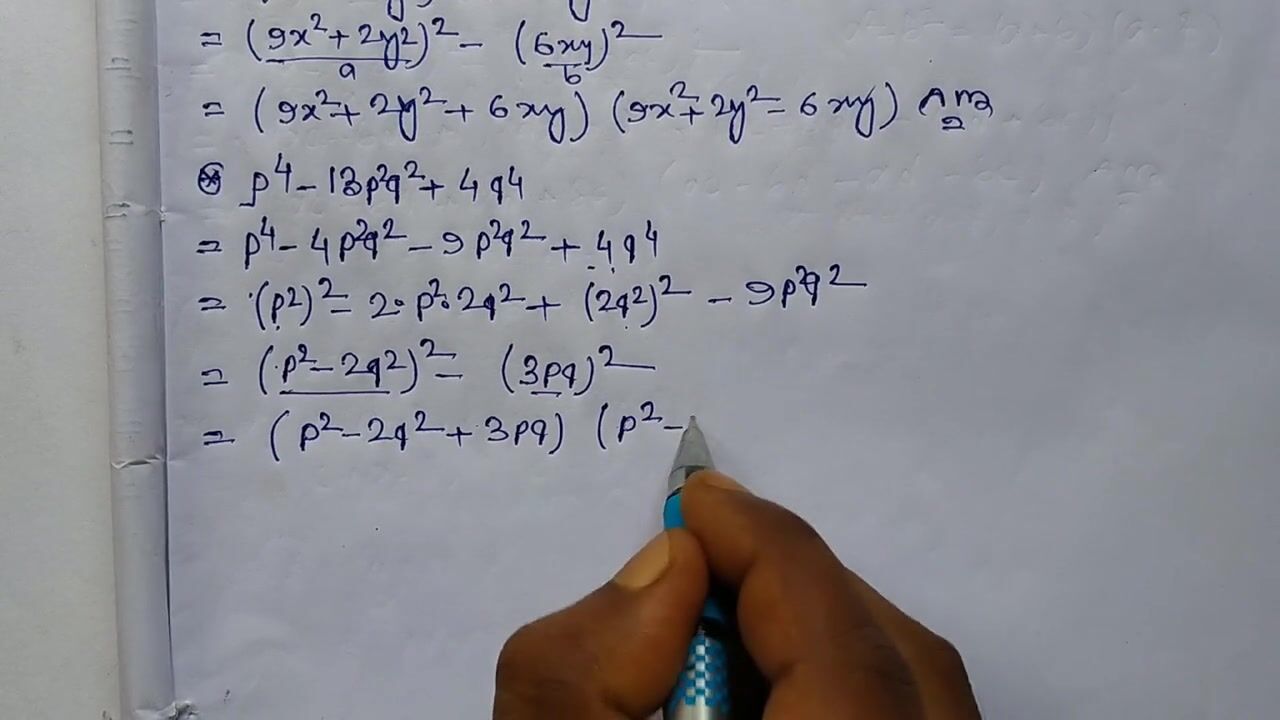 = (9x²+2y²)² - (6xy)²
a b
= (9x²+2y²+6xy) (9x²+2y²-6xy) Ans
⊛ p⁴-13p²q²+4q⁴
= p⁴-4p²q²-9p²q²+4q⁴
= (p²)²-2·p²·2q²+(2q²)²-9p²q²
= (p²-2q²)²-(3pq)²
= (p²-2q²+3pq) (p²-